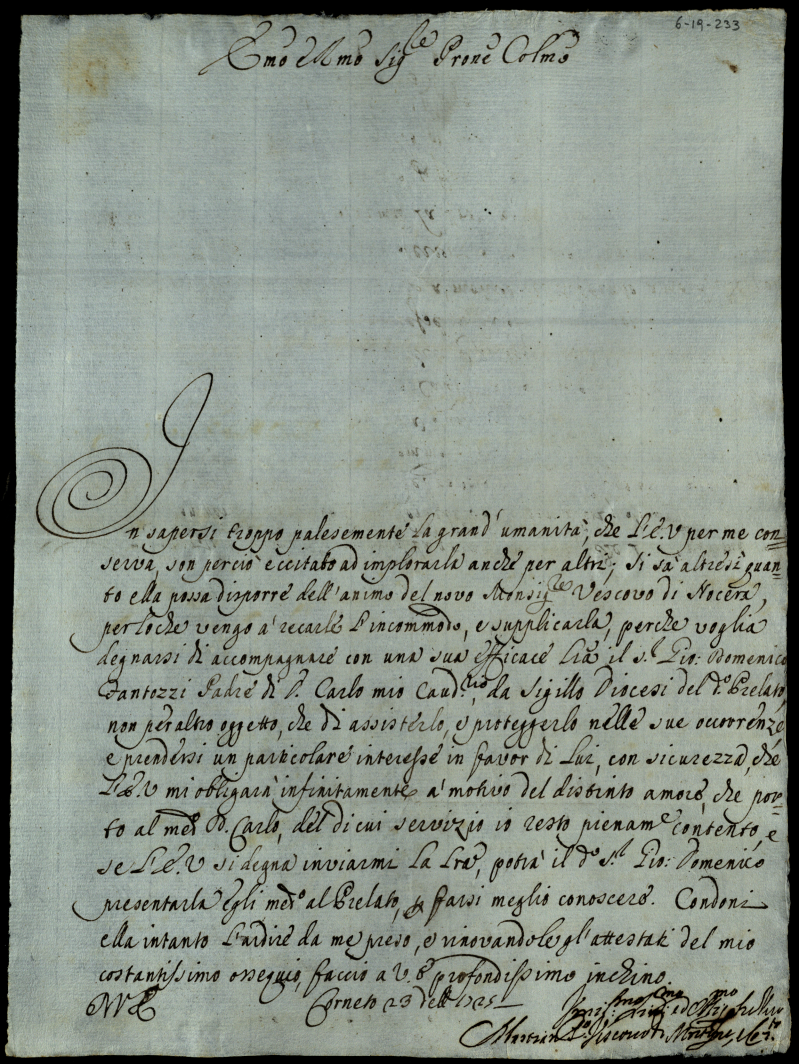 6-19-233
Emo e Rmo Sig.re Prone Colmo
In sapersi troppo palesemente la grand' umanità, che l'E.V per me con=
serva, son perciò eccitato ad implorarla anche per altri; Si sà altresì quan=
to ella possa disporre dell'animo del novo Monsig.re Vescovo di Nocera,
perloche vengo à recarle l'incommodo, e supplicarla, perche voglia
degnarsi di accompagnare con una sua efficace Lrã il s.r Gio: Domenico
Fantozzi Padre di D. Carlo mio Caud.rio, da Sigillo Diocesi del d.o Prelato,
non per altro oggetto, che di assisterlo, e proteggerlo nelle sue occorrenze
e prendersi un particolare interesse in favor di Lui, con sicurezza, che
l'E.V mi obligarà infinitamente à motivo del distinto amore, che por=
to al med.o D. Carlo, del di cui servizio io resto pienam.e contento, e
se l'E.V si degna inviarmi la Lra, potrà il d.o s.r Gio: Domenico
presentarla egli med.o al Prelato, e farsi meglio conoscere. Condoni
ella intanto l'ardire da me preso, e rinovandole gl'attestati del mio
costantissimo ossequio, faccio a V.E profondissimo inchino.
Corneto 23 dell 1725